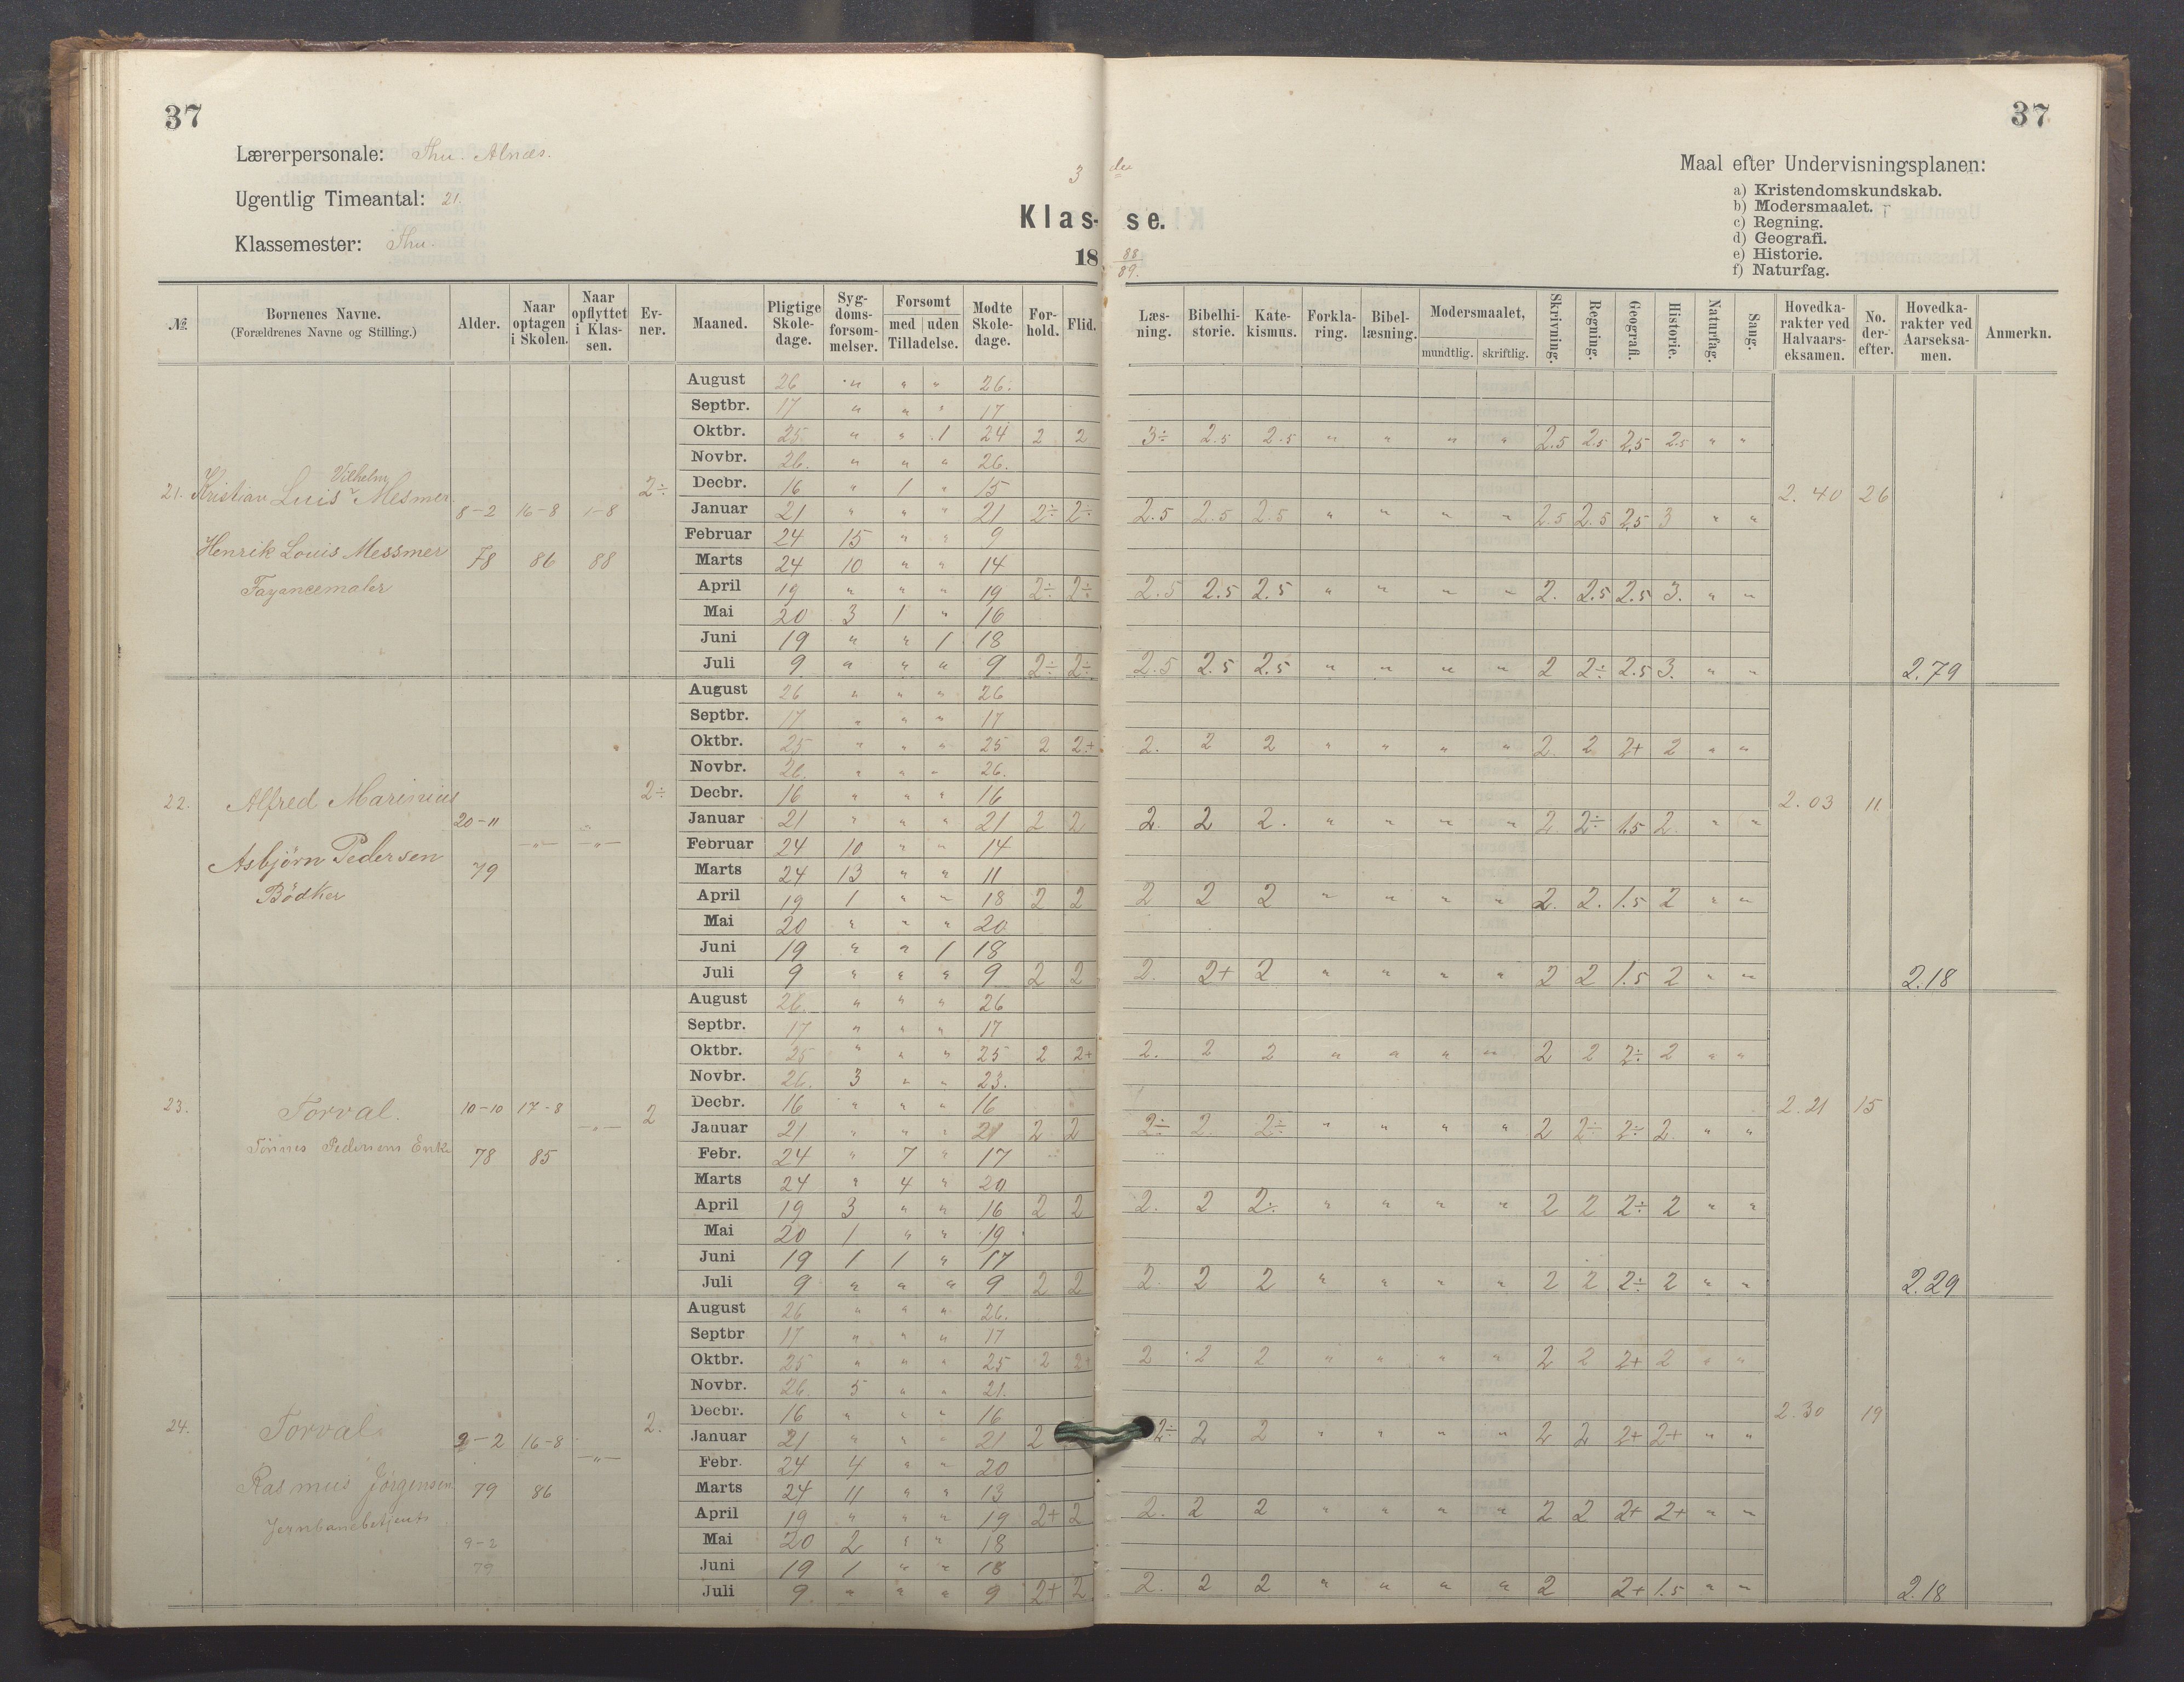 37
37
Lærerpersonale: Thu. Alnæs.
Ugentlig Timeantal: 21.
Klassemester: Thu.
3 die
Klasse.
18 88/89.
Maal efter Undervisningsplanen:
a) Kristendomskundskab.
b) Modersmaalet.
c) Regning.
d) Geografi.
e) Historie.
f) Naturfag.
№. Børnenes Navne. (Forældrenes Navne og Stilling.) Alder. Naar optagen i Skolen. Naar opflyttet i Klassen. Evner. Maaned. Pligtige Skoledage. Sygdomsforsømmelser. Forsømt med uden Tilladelse. Mødte Skoledage. Forhold. Flid. Læsning. Bibelhistorie. Katekismus. Forklaring. Bibellæsning. Modersmaalet, mundtlig. skriftlig. Skrivning. Regning. Geografi. Historie. Naturfag. Sang. Hovedkarakter ved Halvaarseksamen. No. derefter. Hovedkarakter ved Aarseksamen. Anmerkn.
21. Kristian Luis Vilhelm Mesmer. 8-2 78 16-8 86 1-8 88 2÷ 2.40 26
Henrik Louis Messmer
Fayancemaler
August 26 " " " 26.
Septbr. 17 " " " 17
Oktbr. 25 " " 1 24 2 2 3÷ 2.5 2.5 " " " " 2.5 2.5 2.5 2.5 " "
Novbr. 26. " " " 26.
Decbr. 16 " 1 " 15
Januar 21 " " " 21 2÷ 2÷ 2.5 2.5 2.5 " " " " 2.5 2.5 2.5 3 " "
Februar 24 15 " " 9
Marts 24 10 " " 14
April 19 " " " 19 2÷ 2÷ 2.5 2.5 2.5 " " " " 2. 2.5 2.5 3. " "
Mai 20 3 1 " 16
Juni 19 " " 1 18
Juli 9 " " " 9 2÷ 2÷ 2.5 2.5 2.5 " " " " 2 2÷ 2.5 3. " " 2.79
22. Alfred Marinius 20-11 79 -"- -"- 2÷ 2.03 11
Asbjørn Pedersen
Bödker
August 26 " " " 26
Septbr. 17 " " " 17
Oktbr. 25 " " " 25 2 2+ 2. 2 2 " " " " 2. 2 2+ 2 " "
Novbr. 26. " " " 26.
Decbr. 16 " " " 16
Januar 21 " " " 21 2 2 2. 2 2. " " " " 2. 2÷ 1.5 2. " "
Februar 24 10 " " 14
Marts 24 13 " " 11
April 19 1 " " 18 2 2 2 2 2 " " " " 2. 2. 1.5 2 " "
Mai 20 " " " 20
Juni 19 " " 1 18
Juli 9 " " " 9 2 2 2. 2+ 2 " " " " 2 2 1.5 2 " " 2.18
23. Torval. 10-10 78 17-8 85 -"- 2 2.21 15
Tönnes Pedersens Enke
August 26. " " " 26
Septbr. 17 " " " 17
Oktbr. 25 " " " 25 2 2+ 2. 2 2 " " " " 2 2 2÷ 2 " "
Novbr. 26. 3 " " 23.
Decbr. 16 " " " 16
Januar 21 " " " 21 2 2 2÷ 2. 2÷ " " " " 2 2÷ 2÷ 2. " "
Febr. 24 " 7 " 17
Marts 24 " 4 " 20
April 19 3 " " 16 2 2 2. 2 2÷ " " " " 2 2 2÷ 2 " "
Mai 20 1 " " 19
Juni 19 1 1 " 17
Juli 9 " " " 9 2 2 2. 2 2 " " " " 2 2 2÷ 2 " " 2.29
24. Torval. 9-2 79 16-8 86 -"- 2. 2.30 19
Rasmus Jörgensen
Jernbanebetjent
9-2
79
August 26 " " " 26.
Septbr 17 " " " 17
Oktbr. 25 " " " 25 2 2+ 2 2 2 " " " " 2 2 2+ 2 " "
Novbr. 26. 5 " " 21.
Decbr. 16 " " " 16
Januar 21 " " " 21 2 2÷ 2 2 " " " " 2 2 2+ 2+ " "
Febr. 24 4 " " 20
Marts 24 11 " " 13
April 19 " " " 19 2+ 2 2. 2 2 " " " " 2 2 2+ 2+ " "
Mai 20 2 " " 18
Juni 19 1 " " 18
Juli 9. " " " 9 2+ 2 2. 2 2 " " " " 2 2+ 1.5 " " 2.18